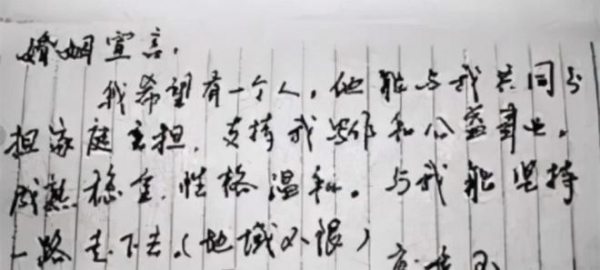 婚姻宣言.
我希望有一个人,他能与我共同分
担家庭重担,支持我写作和公益事业,
成熟稳重,性格温和。与我能坚持
一路走下去.(地域不限)